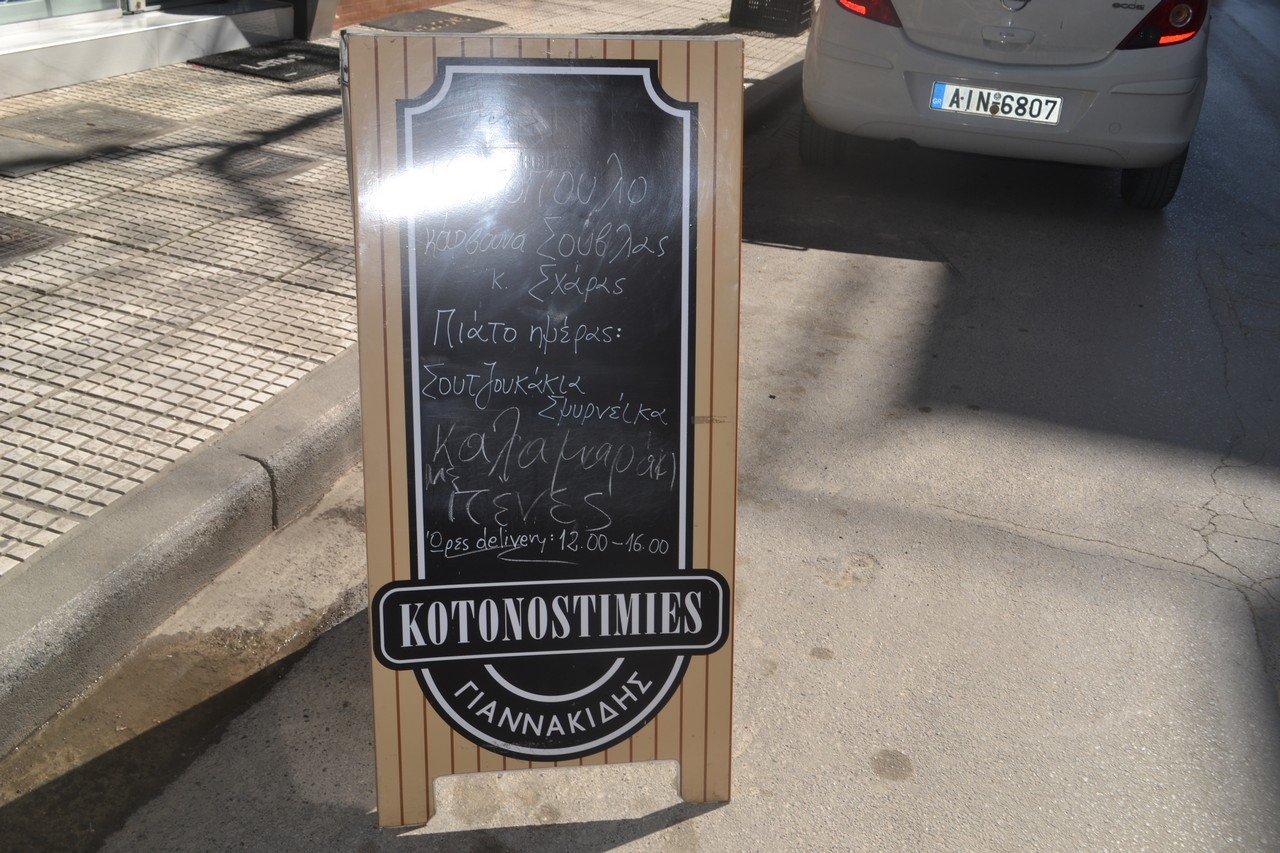 κάρβουνα Σούβλας
κ. Σχάρας
Πιάτο ημέρας:
Σουτζουκάκια
Σμυρνέικα
Καλαμαράκι
με
πένες
Ώρες delivery: 12.00-16.00
KOTONOSTIMIES
ΓΙΑΝΝΑΚΙΔΗΣ
AIN 6807
ecoFLEX